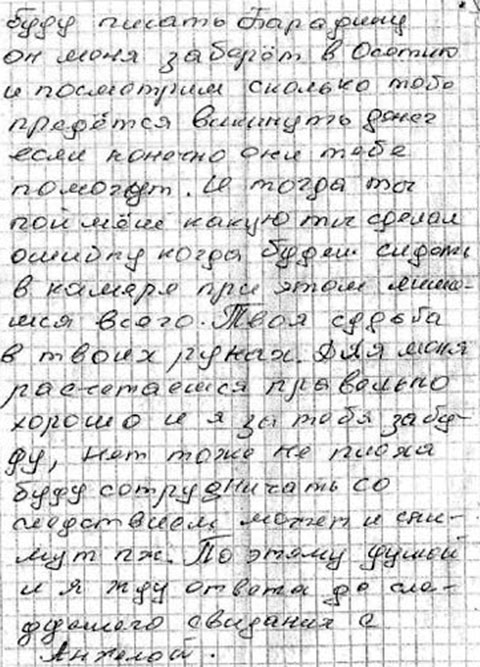 буду писать Барадину
он меня заберёт в Осетию
и посмотрим сколько тебе
предётся выкинуть денег
если конечно они тебе
помогут. И тогда ты
поймёш какую ты сделал
ошибку когда будеш сидеть
в камере при этом лиши-
шся всего. Твоя судьба
в твоих руках. Для меня
расчетаешся правельно
хорошо и я за тебя забу-
ду, нет тоже не плоха
буду сотрудничать со
следствием может и сни-
мут пж. По этому думой
и я жду ответа до сле-
дующего свидания с
Анжелой.